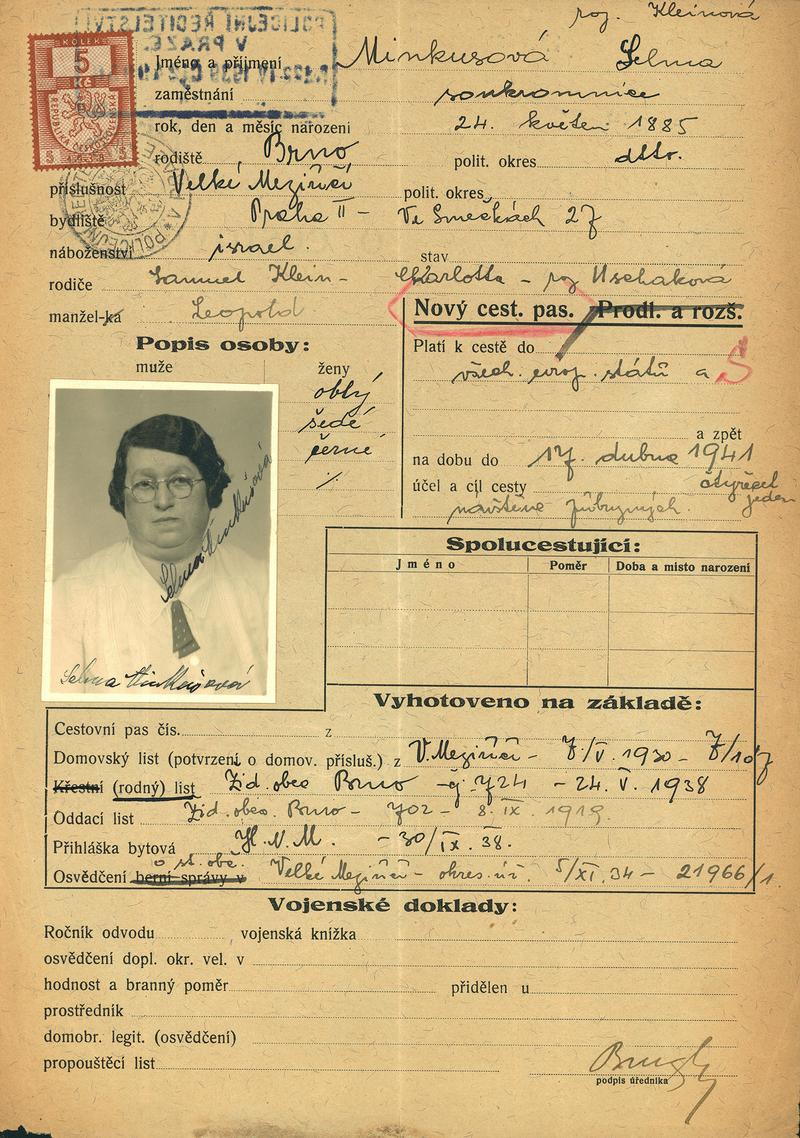 roj. Kleinová
POLICEJNÍ ŘEDITELSTVÍ
V PRAZE
KOLEK
5
Kč
REPUBLIKA ČESKOSLOVENSKÁ
Jméno a příjmení Minkusová Selma
zaměstnání soukromnice
rok, den a měsíc narození 24. květen 1885
rodiště Brno polit. okres dtto.
příslušnost Velké Meziříčí polit. okres
bydliště Praha II – Ve Smečkách 27
náboženství israel. stav
rodiče Samuel Klein – Charlotta – roz Uschaková
manžel-ka Leopold
Nový cest. pas. Prodl. a rozš.
Popis osoby:
muže ženy
oblý
šedé
černé
./.
Platí k cestě do
všech. evrop. států a Š
a zpět
na dobu do 17. dubna 1941
čtyřicet jeden
účel a cíl cesty
návštěva příbuzných.
Selma Minkusová
Selma Minkusová
Spolucestující:
Jméno Poměr Doba a místo narození
Vyhotoveno na základě:
Cestovní pas čís. z
Domovský list (potvrzení o domov. přísluš.) z V. Meziříčí – 7/V. 1930 –
Křestní (rodný) list Žid. obec Brno – čj. 724 – 24. V. 1938
Oddací list Žid. obec. Brno – 702 – 8. IX. 1919.
Přihláška bytová Hl. N. M. – 30/IX. 38.
o st. obč.
Osvědčení berní správy v Velké Meziříčí – okres. úř. 5/XI. 34 – 21966/1.
Vojenské doklady:
Ročník odvodu , vojenská knížka
osvědčení dopl. okr. vel. v
hodnost a branný poměr přidělen u
prostředník
domobr. legit. (osvědčení)
propouštěcí list
podpis úředníka